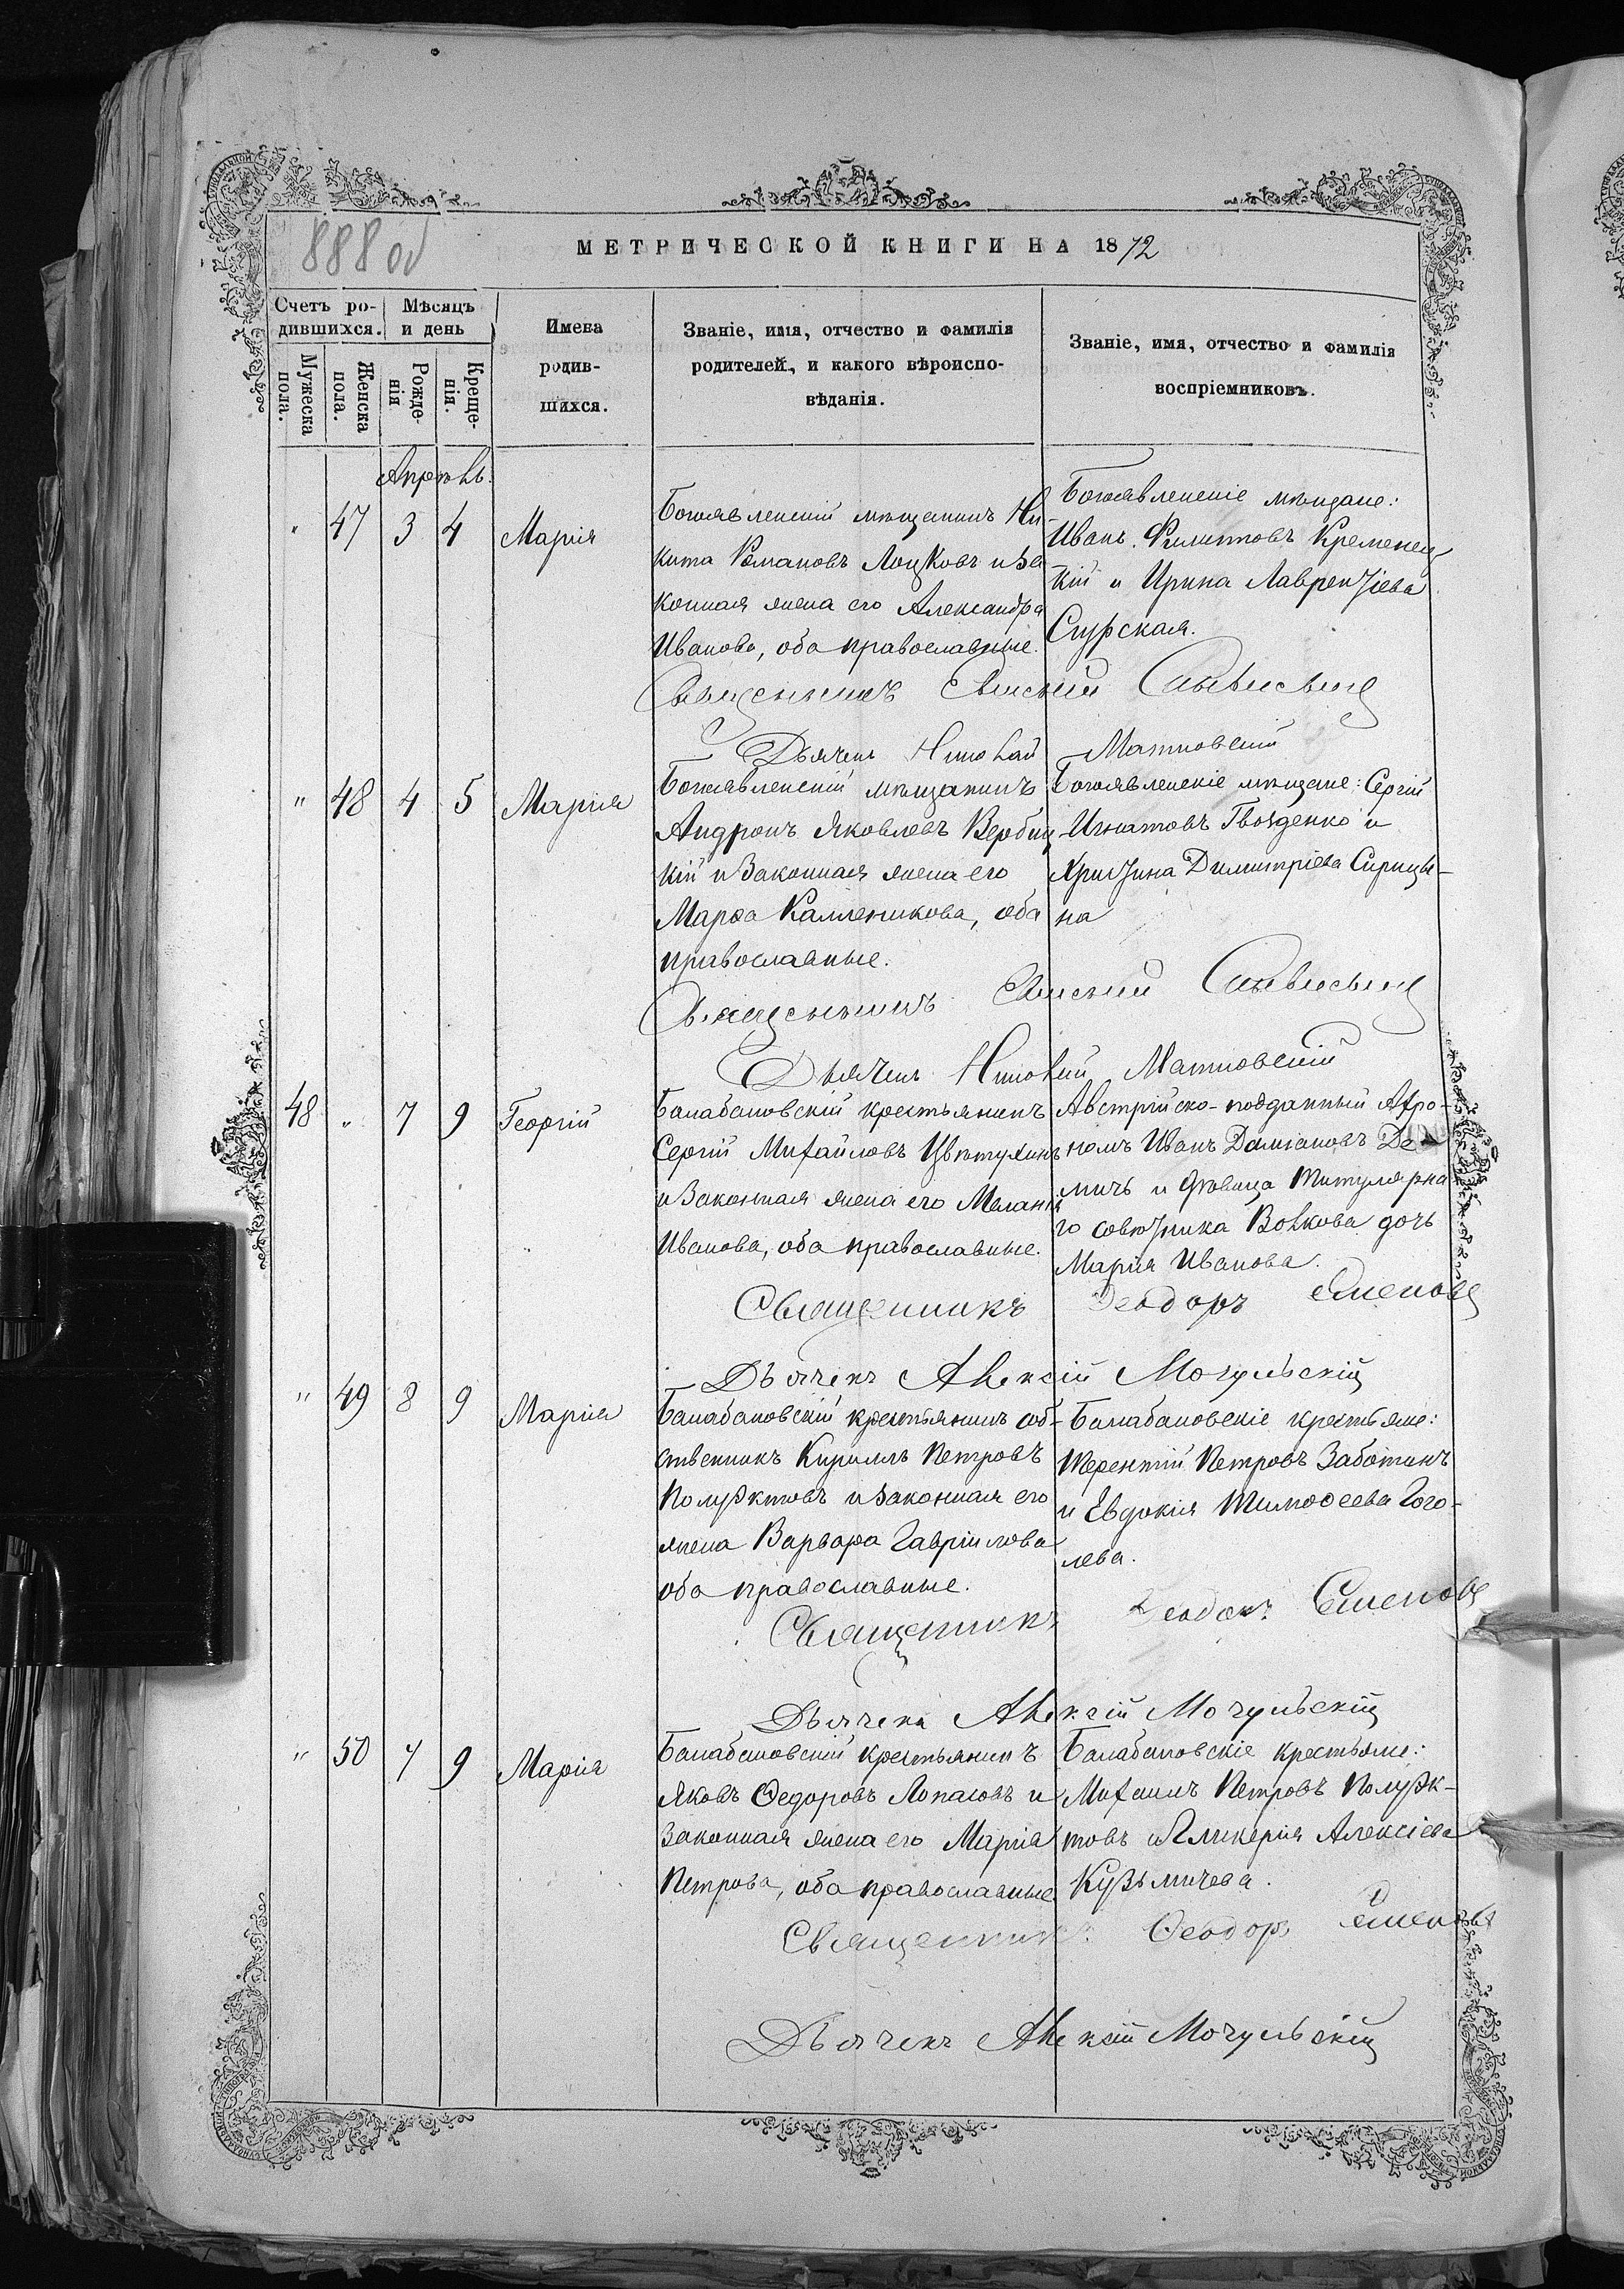 888 об
МЕТРИЧЕСКОЙ КНИГИ НА 1872
Счетъ ро-
дившихся.
Мѣсяцъ
и день
Мужеска
пола.
Женска
пола.
Рожде-
нія
Креще-
нія.
Имена
родив-
шихся.
Званіе, имя, отчество и фамилія
родителей, и какого вѣроиспо-
вѣданія.
Званіе, имя, отчество и фамилія
воспріемниковъ.
Апрѣль.
" 47 3 4 Марія
Богоявленскій мѣщанинъ Ни-
кита Романовъ Лоцковъ и за
конная жена его Александра
Иванова, оба православные.
Богоявленскіе мѣщане:
Иванъ Филиповъ Кременец-
кій и Ирина Лаврентіева
Сгурская.
Священникъ
Дьячекъ Николай Матковскій
" 48 4 5 Марія
Богоявленскій мѣщанинъ
Андронъ Яковлевъ Вербиц
кій и законная жена его
Марѳа Калленикова, оба
православные.
Богоявленскіе мѣщане: Сергій
Игнатовъ Гвозденко и
Христина Димитріева Сирицы-
на
Священникъ
Дьячекъ Николай Матковскій
48 " 7 9 Георгій
Балабановскій крестьянинъ
Сергій Михайловъ Цвѣтухинъ
и законная жена его Меланія
Иванова, оба православные.
Австрійско-подданный Агро-
номъ Иванъ Даміановъ Де
мичъ и дѣвица титулярна
го совѣтника Волкова дочь
Марія Иванова.
Священникъ Ѳеодоръ Семеновъ
Дьячекъ Алексій Мочульскій
" 49 8 9 Марія
Балабановскій крестьянинъ соб-
ственникъ Кириллъ Петровъ
Полуэктовъ и законная его
жена Варвара Гавріилова
оба православные.
Балабановскіе крестьяне:
Терентій Петровъ Заботинъ
и Евдокія Тимоѳеева Гого-
лева.
Священникъ Ѳеодоръ Семеновъ
Дьячекъ Алексій Мочульскій
" 50 7 9 Марія
Балабановскій крестьянинъ
Яковъ Ѳедоровъ Лопасовъ и
законная жена его Марія
Петрова, оба православные
Балабановскіе крестьяне:
Михаилъ Петровъ Полуэк-
товъ и Гликерія Алексіева
Кузьмичева.
Священникъ Ѳеодоръ Семеновъ
Дьячекъ Алексій Мочульскій